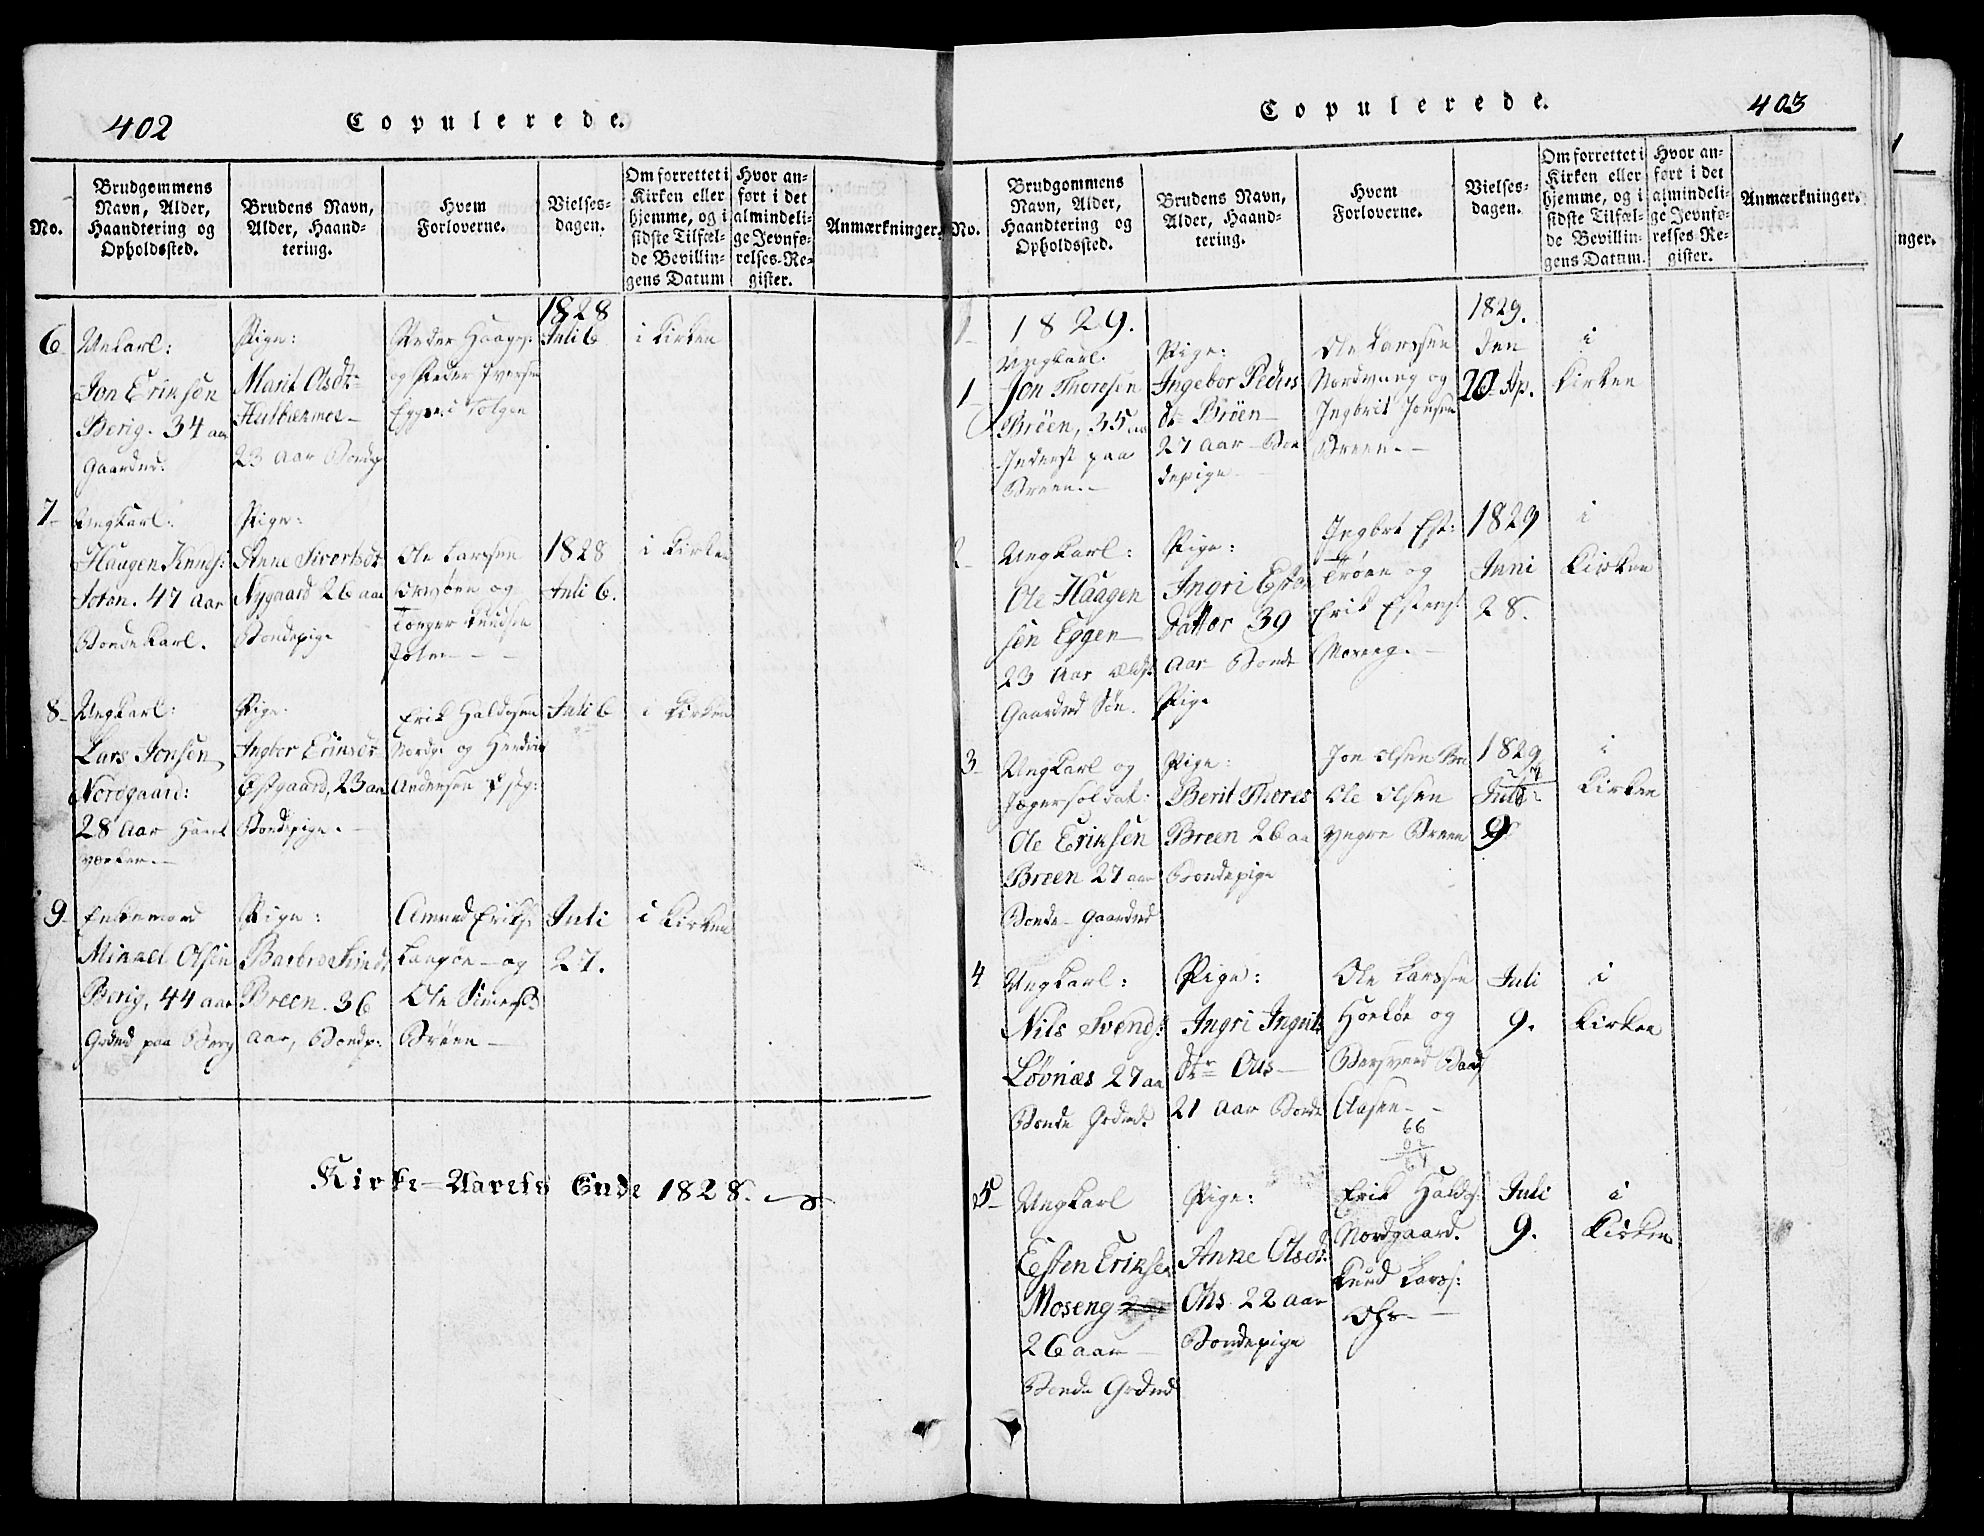 402
Copulerede.
No.
Brudgommens
Navn, Alder,
Haandtering og
Opholdssted.
Brudens Navn,
Alder, Haand-
tering.
Hvem
Forloverne.
Vielses-
dagen.
Om forrettet i
Kirken eller
hjemme, og i
sidste Tilfæl-
de Bevillin-
gens Datum
Hvor an-
ført i det
almindeli-
ge Jevnfø-
relses-Re-
gister.
Anmærkninger.
6
Jon Eriksen
Berig. 34 aar
Gaardmd:
Pige:
Marit Olsdtr
23 Aar Bondep
Peder Haags:
og Peder Iversen
Eggen i Tolgen
1828
Juli 6
i Kirken
7
Ungkarl:
Haagen Knuds:
Toton. 47 Aar
Bondekarl.
Pige:
Anne Sivertsdtr
Nygaard 26 aar
Bondepige
Ole Larssen
og
1828
Juli 6.
i Kirken
8
Ungkarl:
Lars Jonsen
Nordgaard:
28 Aar Haand
værker.
Pige:
Ingbor Eriksdr
Østgaard, 23 aar
Bondepige.
Erik Haldosen
og Hendrik
Andersen
Juli 6
i Kirken
9
Enkemand
Mikael Olsen
Berig, 44 aar
Grdmd paa Berg
Pige:
Barbro Simdr
Breen. 36
Aar, Bondp:
Amund Eriks:
Langøen og
Ole Simens:
Brøen
Juli
27.
i Kirken
Kirke-Aarets Ende 1828.
403
Copulerede.
No.
Brudgommens
Navn, Alder,
Haandtering og
Opholdssted.
Brudens Navn,
Alder, Haand-
tering.
Hvem
Forloverne.
Vielses-
dagen.
Om forrettet i
Kirken eller
hjemme, og i
sidste Tilfæl-
de Bevillin-
gens Datum.
Hvor an-
ført i det
almindeli-
ge Jevnfø-
relses-Re-
gister.
Anmærkninger.
1829.
1
Ungkarl.
Jon Thoresen
Brøen, 35 aar
Inderst paa
Breen.
Pige:
Ingebor Peders
dr Brøen
27 Aar Bon
depige
Ole Larssen
Nordvang og
Ingbrit Jonsen
Breen.
1829.
den
20 Ap.
i
Kirken
2
Ungkarl:
Ole Haagen
sen Eggen
23 Aar
Gaardmd Søn.
Pige:
Ingri Esten
Datter 39
Aar Bonde
Pige
Ingbrt Est:
Trøen og
Erik Estens:
Moseng.
1829
Juni
28.
i
Kirken
3
Ungkarl og
Jægersoldat:
Ole Eriksen
Breen 27 aar
Bonde Gaardmd
Pige:
Berit Thores
Breen 26 aa
Bondepige
Jon Olsen Bre
Ole Olsen
Yngre Breen
1829
Juli
9
i
Kirken
4
Ungkarl:
Nils Svends:
Løvnæs 27 aa
Bonde Grdmd:
Pige:
Ingri Ingrits
dtr Ous
21 Aar Bonde
Ole Larssen
og
Bersvend Bard
Aasen
66
Juli
9.
i
Kirken
5
Ungkarl
Esten Eriksen
Moseng
26 aar
Bonde Grdmd
Pige:
Anne Olsdr.
Ohs 22 aar
Bondepige
Erik Haldos:
Nordgaard.
Knud Larss:
Juli
9.
i
Kirken
nger.